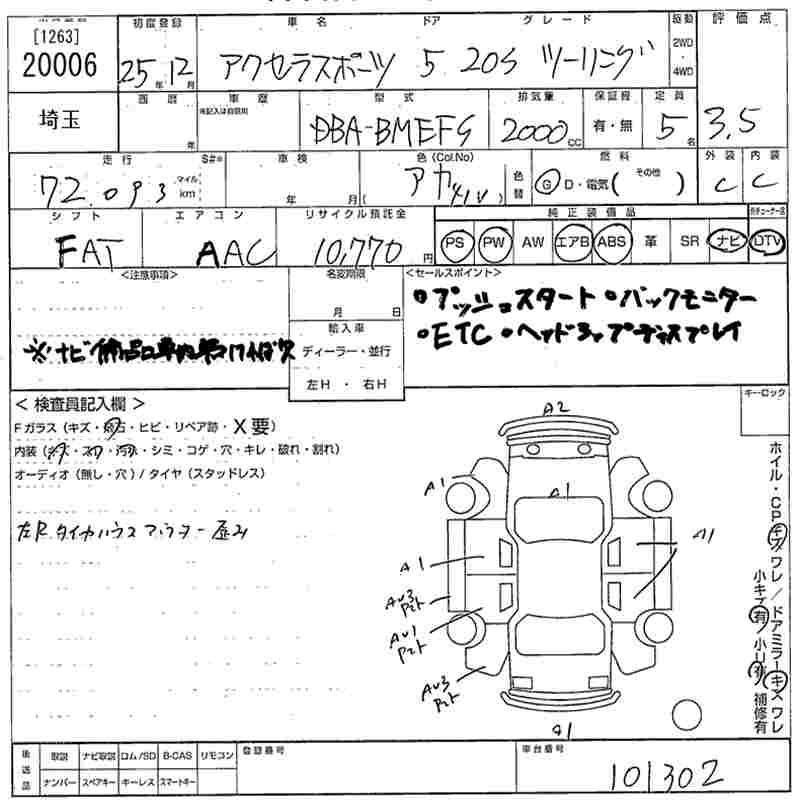 [1263]
20006
初度登録 車名 ドア グレード 駆動 評価点
25年12月 アクセラスポーツ 5 20S ツーリング 2WD・4WD
埼玉
西暦 車歴 型式 排気量 保証書 定員
年 未記入は自家用 DBA-BMEFS 2000cc 有・無 5名 3.5
走行 S#* 車検 色(Col.No) 燃料 外装 内装
72,093 マイル km 年 月 アカ(41V) 色替 G・D・電気( その他 ) C C
シフト エアコン リサイクル預託金 純正装備品
FAT AAC 10,770円 PS PW AW エアB ABS 革 SR ナビ DTV
<注意事項> 名変期限 <セールスポイント>
月 日
・プッシュスタート・バックモニター
・ETC・ヘッドアップディスプレイ
輸入車
※ナビ
ディーラー・並行
左H・右H
<検査員記入欄> キーロック
Fガラス(キズ・飛石・ヒビ・リペア跡・X要)
内装(・シミ・コゲ・穴・キレ・破れ・割れ)
オーディオ(無し・穴)/タイヤ(スタッドレス)
左R タイヤハウス アウター 歪み
A2
A1
A1
A1
A1
AU3 Pat
AU1 Pat
AU3 Pat
A1
ホイル・CPキズ ワレ/ドアミラーキズ ワレ
小キズ有 小U有 補修有
後送品 取説 ナビ取説 ロム/SD B-CAS リモコン 登録番号 車台番号
ナンバー スペアキー キーレス スマートキー 101302